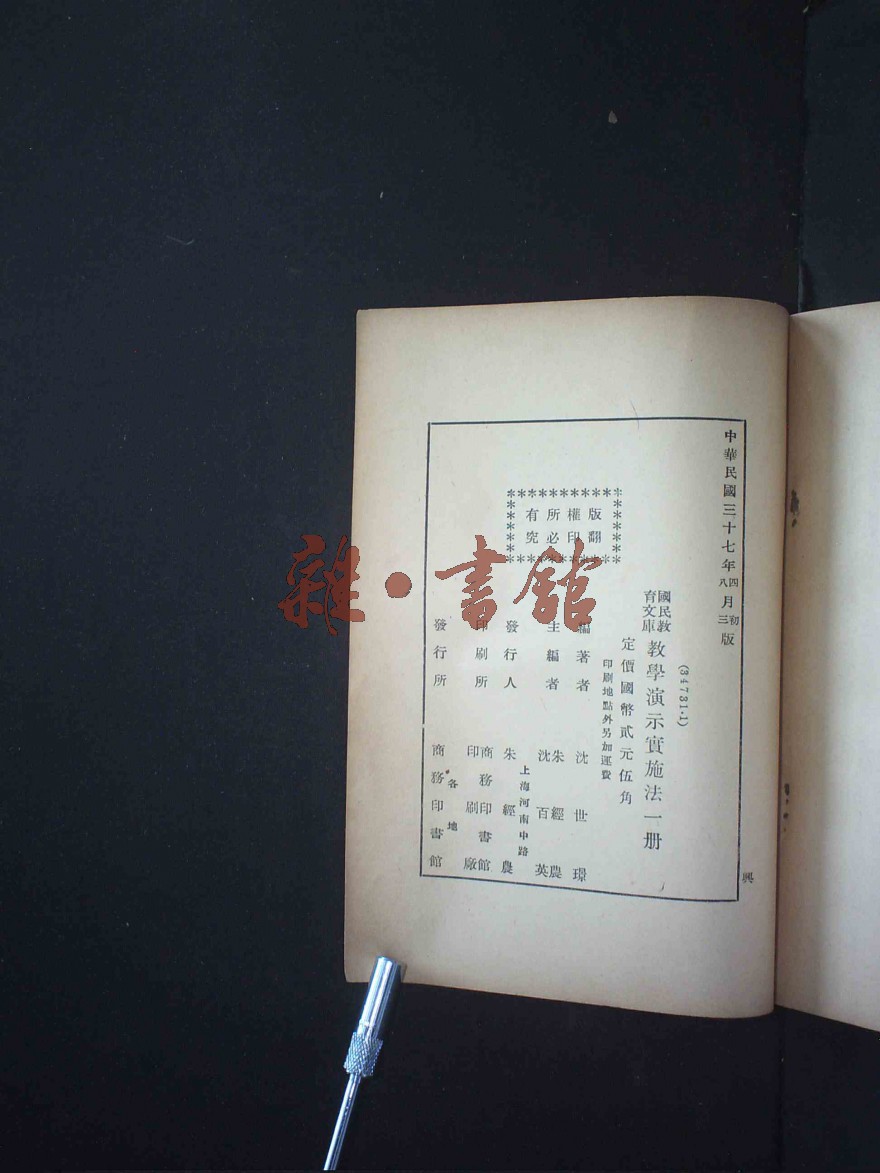 中華民國三十七年四月初版
八月三版
(34731·1)
國民教育文庫 教學演示實施法一册
定價國幣貳元伍角
印刷地點外另加運費
版權所有
翻印必究
編著者 沈世璟
主編者 朱經農 沈百英
上海河南中路
發行人 朱經農
印刷所 商務印書館印刷廠
各地
發行所 商務印書館
興
雜·書館